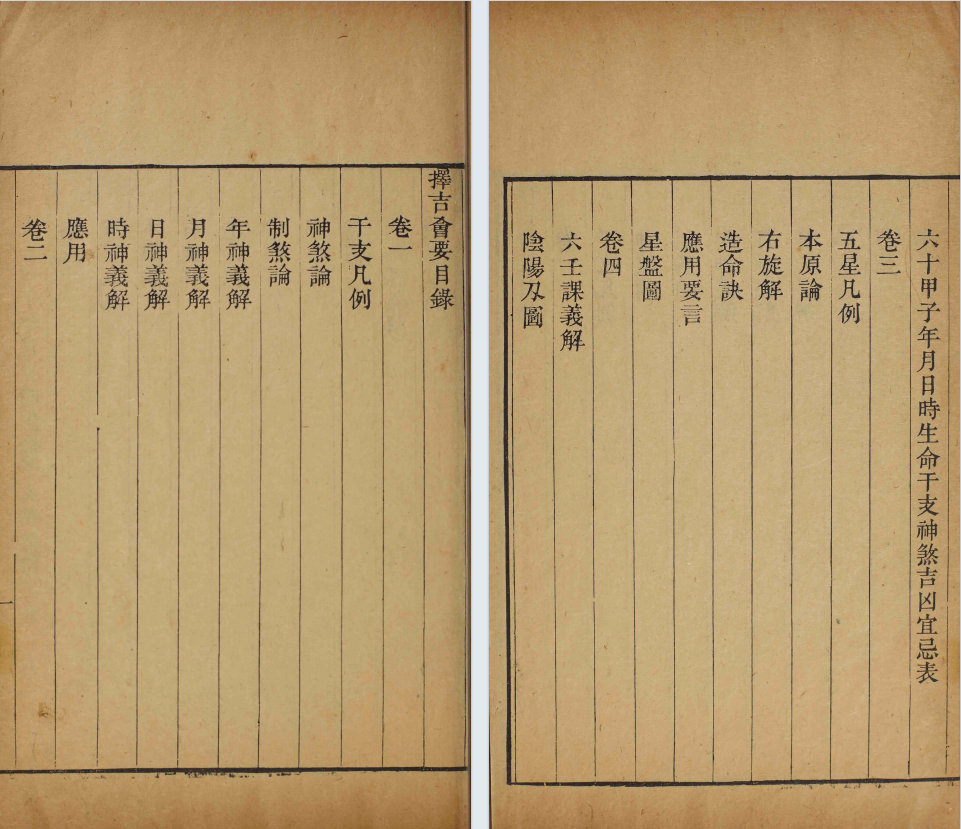 擇吉會要目錄
卷一
干支凡例
神煞論
制煞論
年神義解
月神義解
日神義解
時神義解
應用
卷二
六十甲子年月日時生命干支神煞吉凶宜忌表
卷三
五星凡例
本原論
右旋解
造命訣
應用要言
星盤圖
卷四
六壬課義解
陰陽刄圖